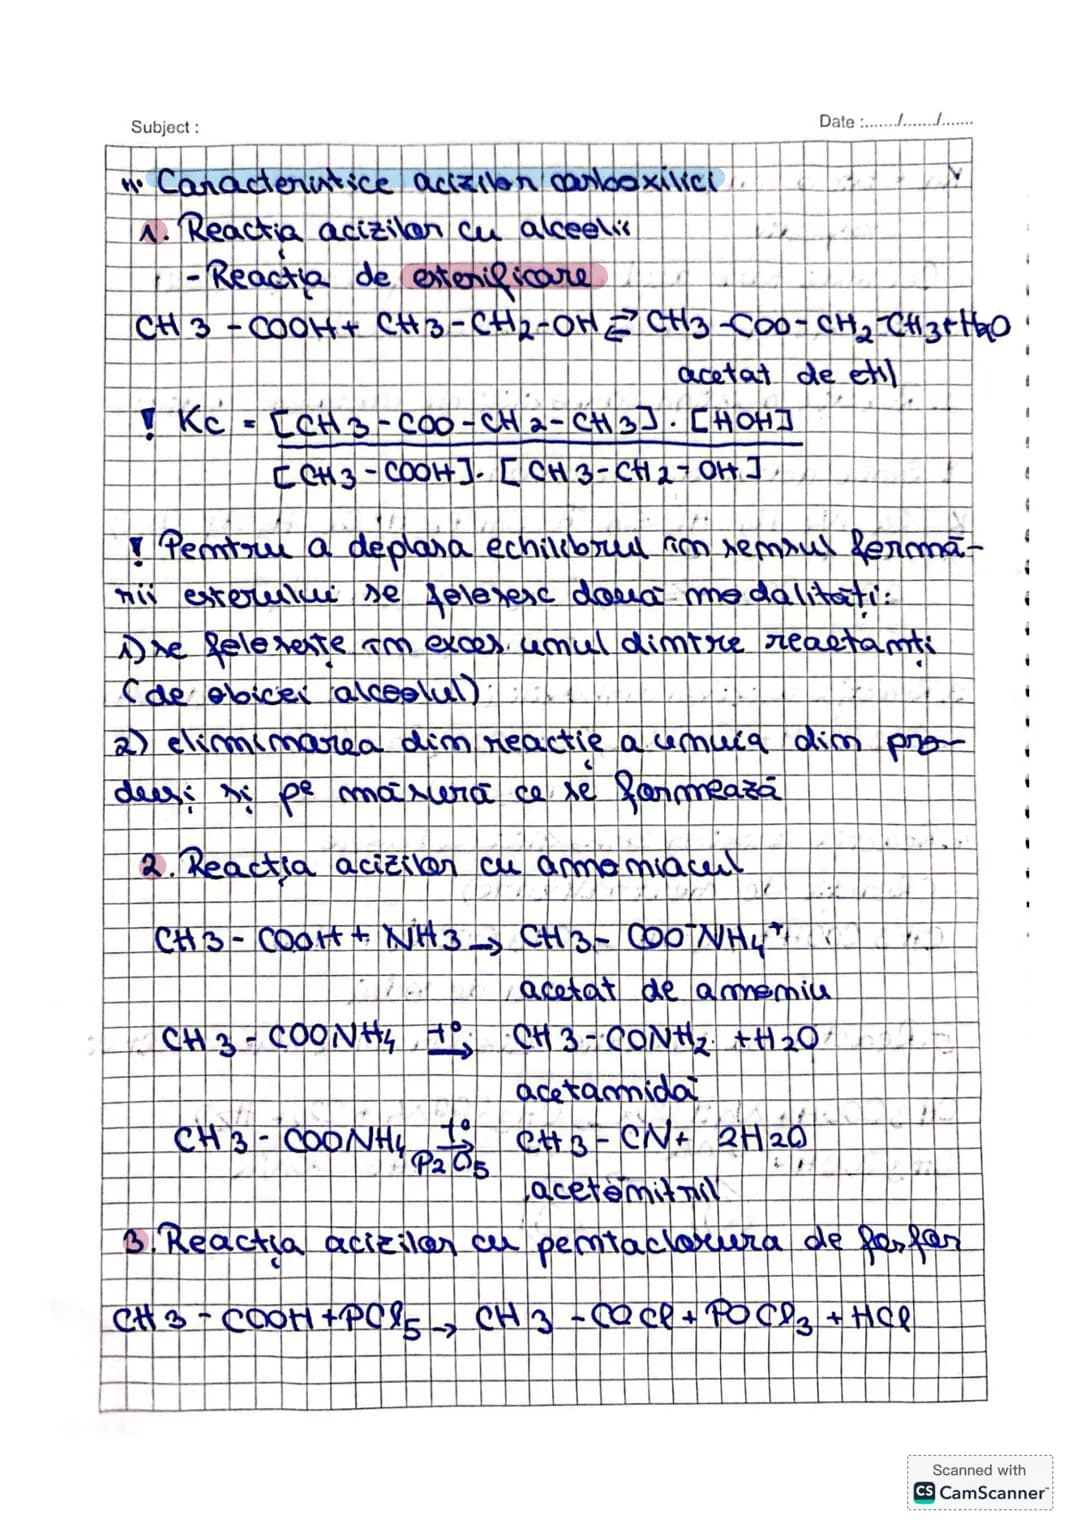 Subject :
Date :......./......./.......
"• Caracteristice acizilor carboxilici
1. Reacția acizilor cu alcoolii
- Reacția de esterificare
CH3-COOH + CH3-CH2-OH ⇄ CH3-COO-CH2-CH3 + H2O
acetat de etil
! Kc = [CH3-COO-CH2-CH3]·[HOH]
[CH3-COOH]·[CH3-CH2-OH]
! Pentru a deplasa echilibrul în sensul formă-
rii esterului se folosesc două modalități:
1) se folosește în exces unul dintre reactanți
(de obicei alcoolul)
2) eliminarea din reacție a unuia din pro-
duși și pe măsură ce se formează
2. Reacția acizilor cu amoniacul
CH3-COOH + NH3 → CH3-COO⁻NH4⁺
acetat de amoniu
CH3-COONH4 t°→ CH3-CONH2 + H2O
acetamidă
CH3-COONH4 t°→ P2O5 CH3-CN + 2H2O
acetonitril
3. Reacția acizilor cu pentaclorura de fosfor
CH3-COOH + PCl5 → CH3-COCl + POCl3 + HCl
Scanned with
CS CamScanner